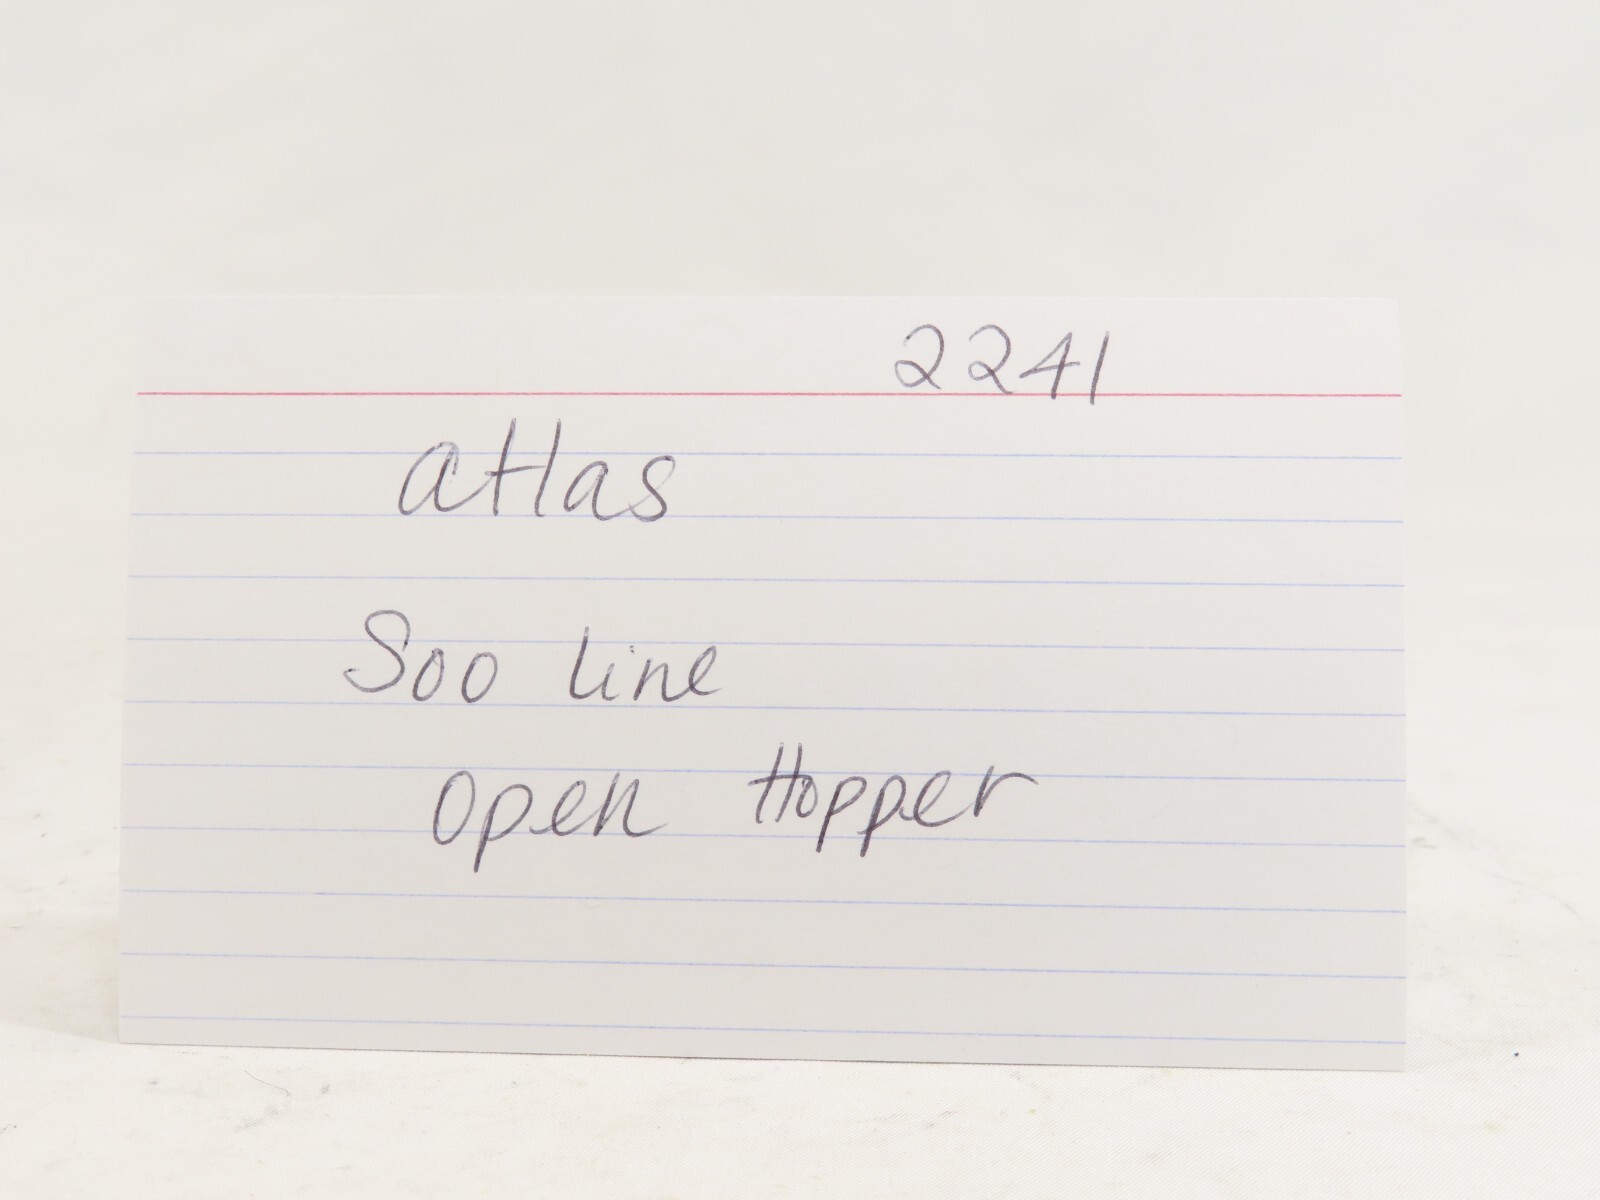 2241
atlas
Soo Line
open Hopper